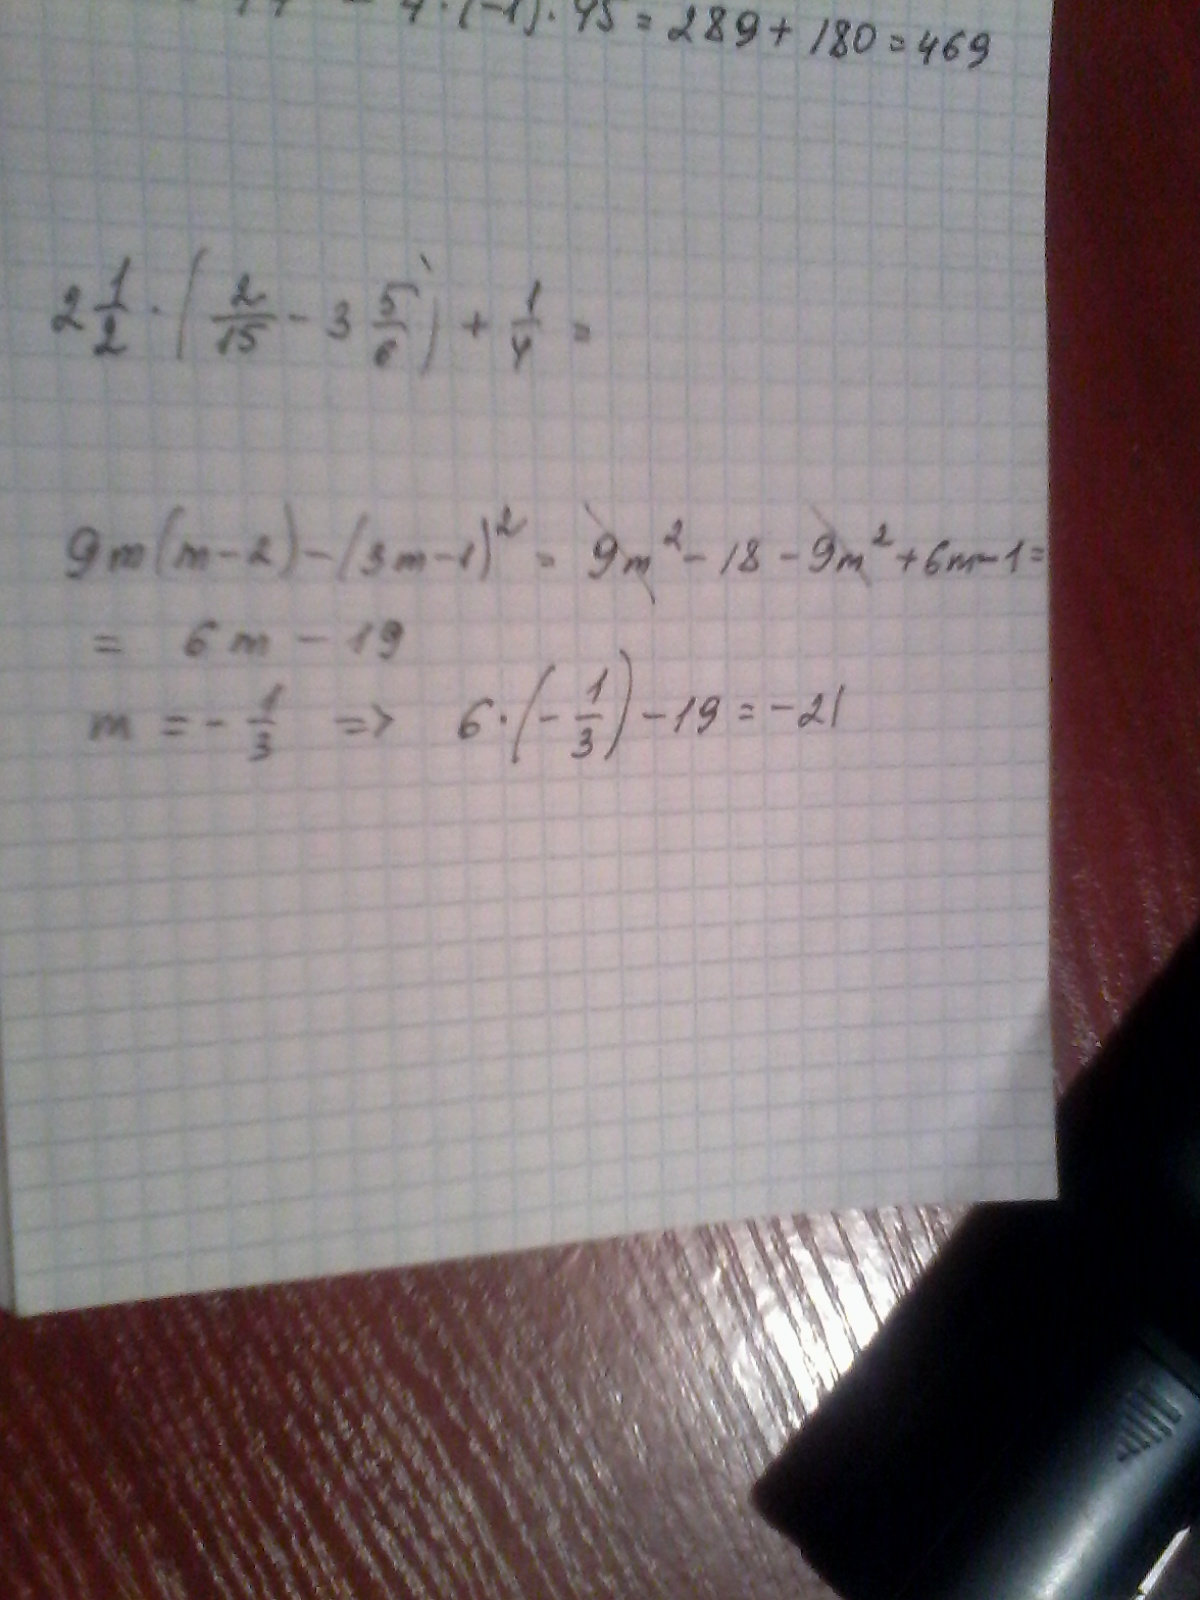 4·(-1)·45=289+180=469
2 1/2·(2/15-3 5/6)+1/4=
9m(m-2)-(3m-1)²=9m²-18-9m²+6m-1=
= 6m-19
m=-1/3 => 6·(-1/3)-19=-21